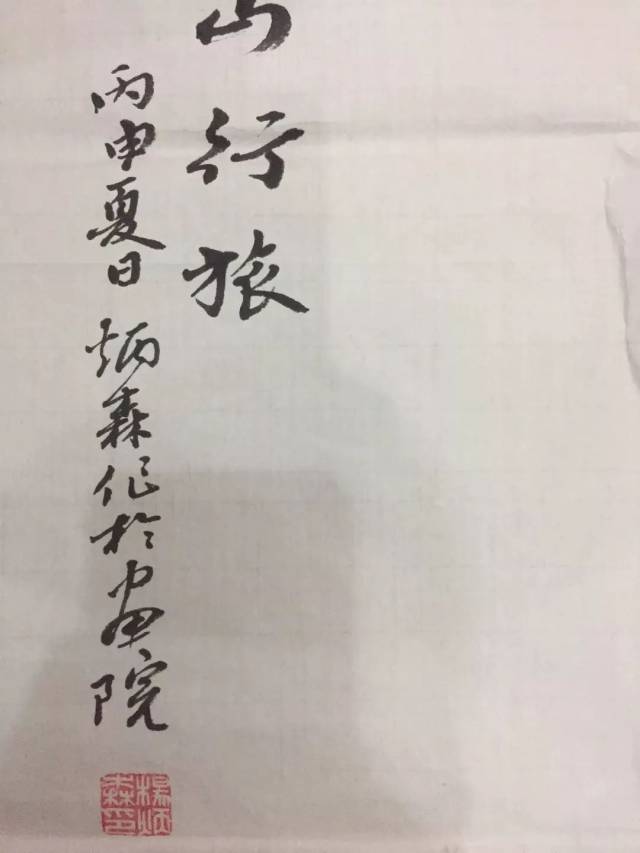 山行旅
丙申夏日炳森作於画院
楊炳森印